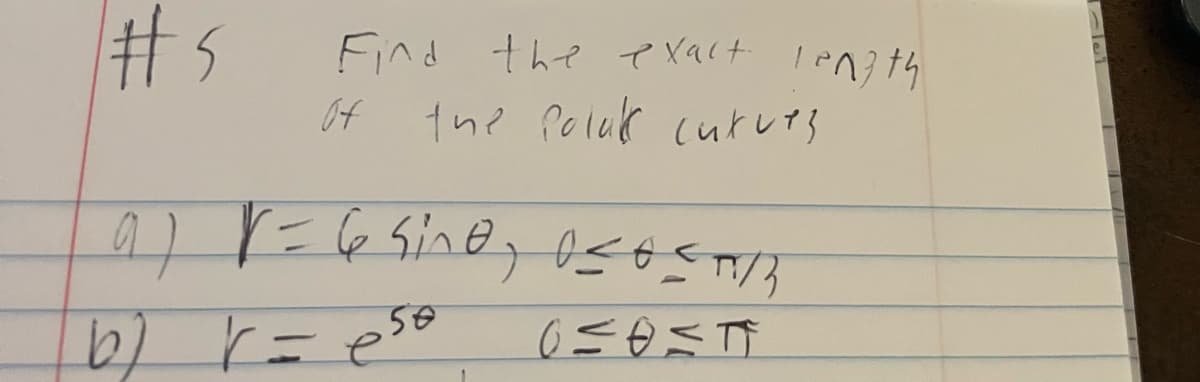 #5 Find the exact length
of the Polar curves
a) r = 6 sinθ, 0≤θ≤π/3
b) r = e^5θ 0≤θ≤π